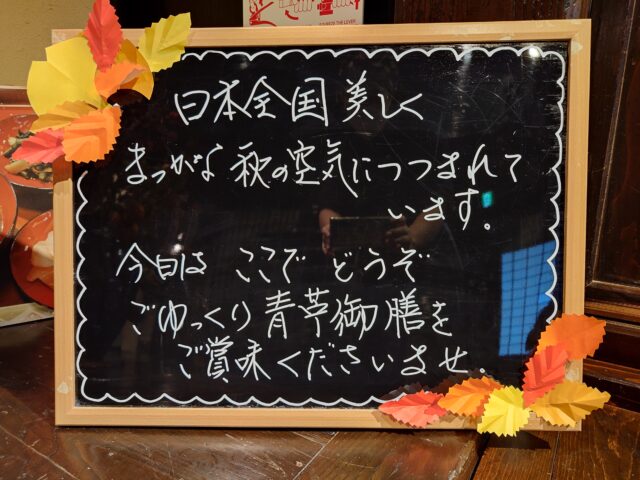 日本全国美しく
まっかな秋の空気につつまれて
います。
今日は ここで どうぞ
ごゆっくり青芋御膳を
ご賞味くださいませ.